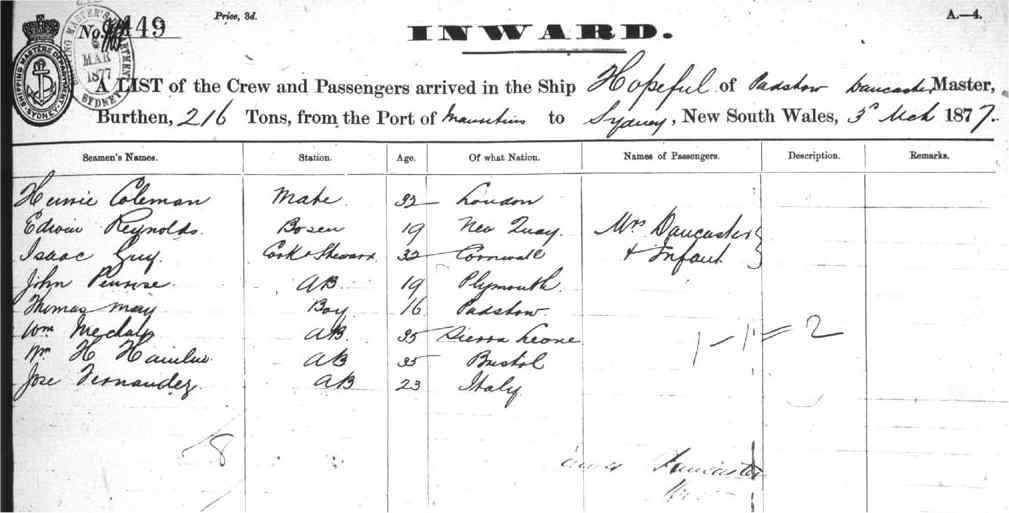 Price, 3d.
A.—4.
No. 449
INWARD.
MAR
1877
SYDNEY
A LIST of the Crew and Passengers arrived in the Ship Hopeful of Padstow Dancaster, Master,
Burthen, 216 Tons, from the Port of Mauritius to Sydney, New South Wales, 3rd Mch 1877.
Seamen's Names. Station. Age. Of what Nation. Names of Passengers. Description. Remarks.
Coleman Mate 32 London
Edwin Reynolds. Bosen 19 New Quay. Mrs Dancaster
Isaac Guy. Cook & Steward 32 Cornwall & Infant
John Penrose AB 19 Plymouth.
Thomas May Boy 16 Padstow.
Wm AB 35 Sierra Leone 1 - 1 = 2
Wm H AB 35 Bristol
Jose Fernandez. AB 23 Italy
8
Dancaster